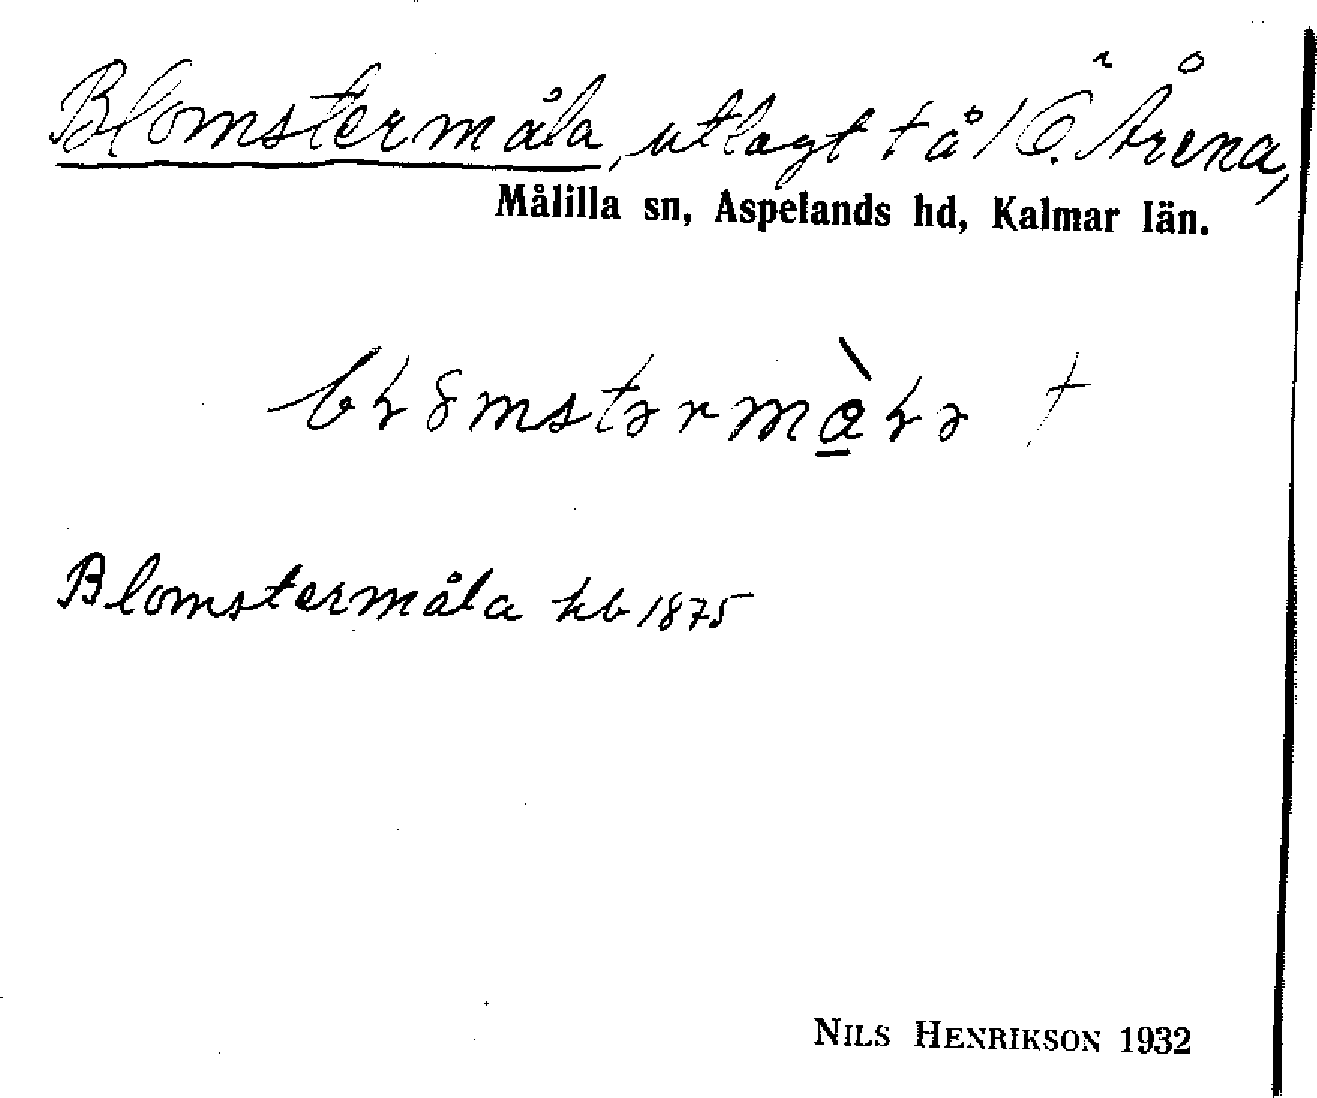 Blomstermåla, utlagt t å 1 Ö. Årena,
Målilla sn, Aspelands hd, Kalmar län.
Blomstermåla hb 1875
NILS HENRIKSON 1932